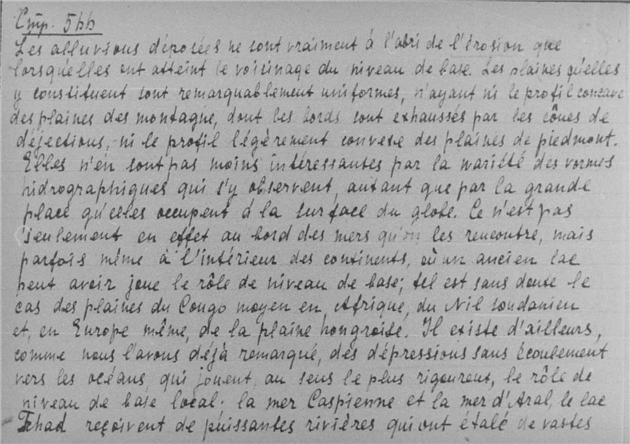 Стр. 544
Les alluvsous déposées ne sont vraiment à l'abri de l'érosion que
lorsqu'elles ont atteint le voisinage du niveau de base. Les plaines qu'elles
y constituent sont remarquablement uniformes, n'ayant ni le profil concave
des plaines des montagne, dont les bords sont exhaussés par les cônes de
déjections, ni le profil légèrement convexe des plaines de piedmont.
Elles n'en sont pas moins intéressantes par la variété des vormes
hidrographiques qui s'y observent, autant que par la grande
place qu'elles occupent à la surface du globe. Ce n'est pas
seulement en effet au bord des mers qu'on les rencontre, mais
parfois même à l'intérieur des continents, où un ancien lac
peut avoir joue le rôle de niveau de base; tel est sans doute le
cas des plaines du Congo moyen en Afrique, du Nil soudanien
et, en Europe même, de la plaine hongroise. Il existe d'ailleurs,
comme nous l'avons déjà remarqué, des dépressions sans écoulement
vers les océans, qui jouent, au sens le plus rigoureux, le rôle de
niveau de base local; la mer Caspienne et la mer d'Aral, le lac
Tchad reçoivent de puissantes rivières qui ont étalé de vastes